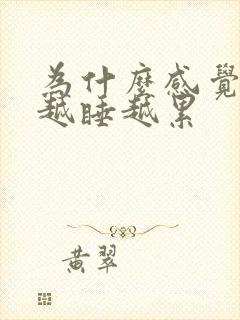 為什麼感覺
越睡越累
黃翠